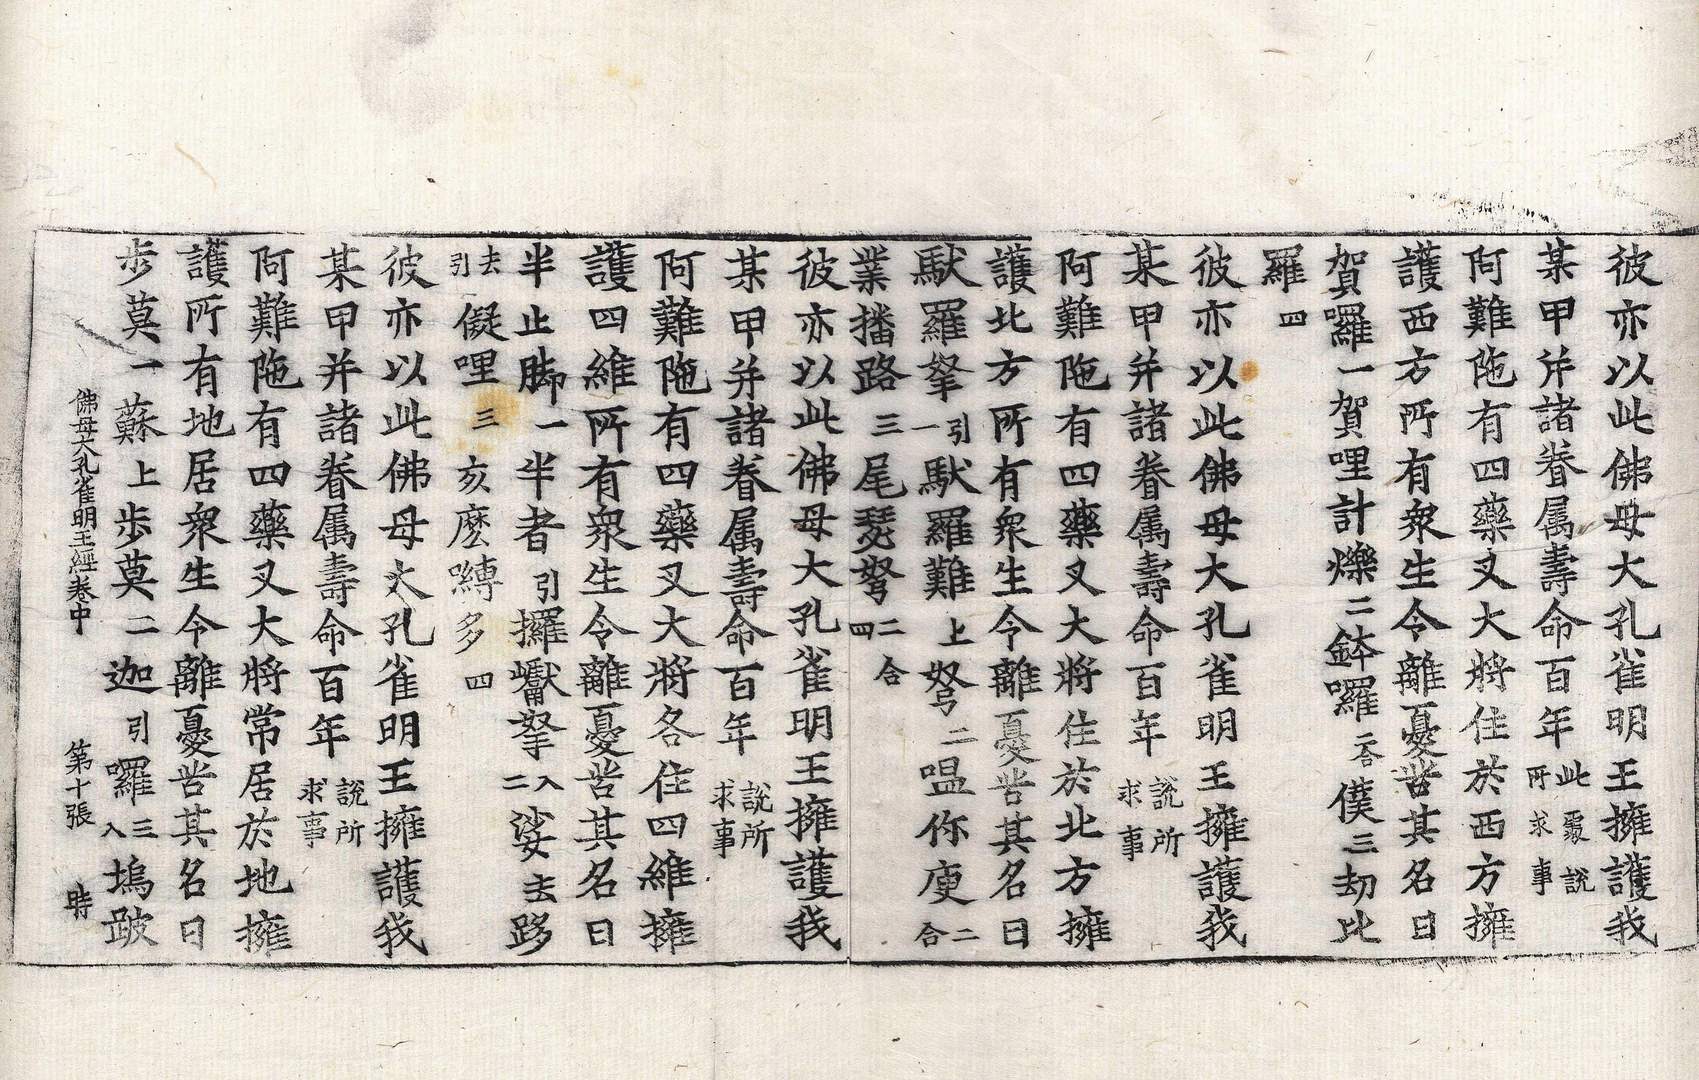 彼亦以此佛母大孔雀明王擁護我
某甲并諸眷属壽命百年此處說所求事
阿難陁有四藥叉大將住於西方擁
護西方所有衆生令離憂苦其名曰
賀囉一賀哩計爍二鉢囉二合僕三劫比
羅四
彼亦以此佛母大孔雀明王擁護我
某甲并諸眷属壽命百年說所求事
阿難陁有四藥叉大將住於北方擁
護北方所有衆生令離憂苦其名曰
馱羅拏引一馱羅難上弩二嗢你庾二合
業播路三尾瑟弩二合四
彼亦以此佛母大孔雀明王擁護我
某甲并諸眷属壽命百年說所求事
阿難陁有四藥叉大將各住四維擁
護四維所有衆生令離憂苦其名曰
半止脚一半者引攞巘拏入二娑去跢
去引儗哩三亥麽嚩多四
彼亦以此佛母大孔雀明王擁護我
某甲并諸眷属壽命百年說所求事
阿難陁有四藥叉大將常居於地擁
護所有地居衆生令離憂苦其名曰
步莫一蘇上步莫二迦引囉三入塢跛
佛母大孔雀明王經卷中 第十張 時